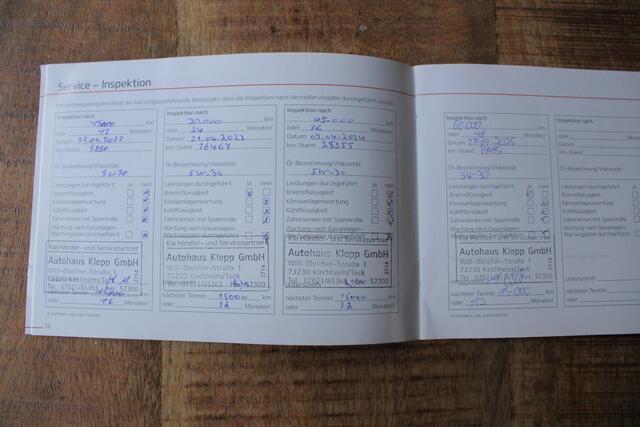 Service – Inspektion
Mit Abstempelung bestätigt die wartungsausführende Werkstatt, dass die Inspektion nach Herstellervorgabe durchgeführt wurde.
Inspektion nach
15000 km
oder 12 Monaten
Datum 25.04.2022
km-Stand
Öl-Bezeichnung/Viskosität:
5W30
Leistungen durchgeführt: ja nein
Bremsflüssigkeit
Klimaanlagenwartung
Kühlflüssigkeit
Zahnriemen mit Spannrolle
Wartung nach Gasanlagen-
Wartungsplan durchgeführt
Kia Händler- und Servicepartner
Autohaus Klepp GmbH
Willi-Bleicher-Straße 1
73230 Kirchheim/Teck
Tel.: 07021/85363 52300
2714
oder 12 Monaten
Inspektion nach
30.000 km
oder 24 Monaten
Datum 21.04.2023
km-Stand 16467
Öl-Bezeichnung/Viskosität:
5W-30
Leistungen durchgeführt: ja nein
Bremsflüssigkeit
Klimaanlagenwartung
Kühlflüssigkeit
Zahnriemen mit Spannrolle
Wartung nach Gasanlagen-
Wartungsplan durchgeführt
Kia Händler- und Servicepartner
Autohaus Klepp GmbH
Willi-Bleicher-Straße 1
73230 Kirchheim/Teck
Tel.: 07021/85363 52300
2714
nächster Termin 15000 km
oder 12 Monaten
Inspektion nach
45.000 km
oder 36 Monaten
Datum 09.04.2024
km-Stand 28355
Öl-Bezeichnung/Viskosität:
5W-30
Leistungen durchgeführt: ja nein
Bremsflüssigkeit
Klimaanlagenwartung
Kühlflüssigkeit
Zahnriemen mit Spannrolle
Wartung nach Gasanlagen-
Kia Händler- und Servicepartner
Autohaus Klepp GmbH
Willi-Bleicher-Straße 1
73230 Kirchheim/Teck
Tel.: 07021/85363 52300
2714
nächster Termin 15000 km
oder 12 Monaten
14
Inspektion nach
60.000 km
oder 48 Monaten
Datum 27.03.2025
km-Stand
Öl-Bezeichnung/Viskosität:
5W-30
Leistungen durchgeführt: ja nein
Bremsflüssigkeit
Klimaanlagenwartung
Kühlflüssigkeit
Zahnriemen mit Spannrolle
Wartung nach Gasanlagen-
Wartungsplan durchgeführt
Autohaus Klepp GmbH
Willi-Bleicher-Straße 1
73230 Kirchheim/Teck
2714
nächster Termin 15.000 km
oder 12 Monaten
Inspektion nach
oder
Datum
km-Stand
Öl-Bezeichnung/Viskosität:
Leistungen durchgeführt:
Bremsflüssigkeit
Klimaanlagenwartung
Kühlflüssigkeit
Zahnriemen mit Spannrolle
Wartung nach Gasanlagen-
Wartungsplan durchgeführt
Unterschrift
nächster Termin
oder